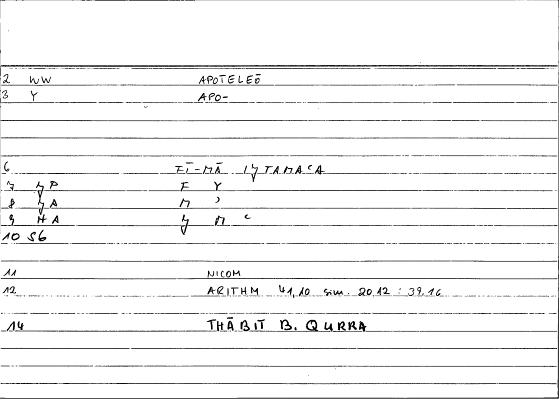 2 WW APOTELEŌ
3 Y APO-
6 FĪ-MĀ IǴTAMAʿA
7 ǴP F Y
8 ǴA M ʾ
9 HA Ǵ M ʿ
10 S6
11 NICOM
12 ARITHM 41,10 sim. 20,12 : 39,16
14 THĀBIT B. QURRA